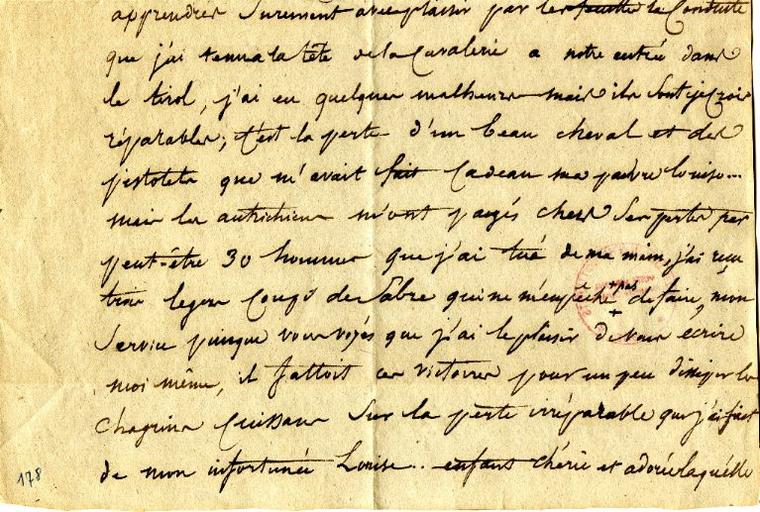 apprendres surement avec plaisir par les feuilles la Conduite
que j'ai tenu a la tête de la Cavalerie a notre entrée dans
le tirol, j'ai eu quelques malheurs mais ils sont je crois
réparables, C'est la perte d'un beau cheval et des
pistolets que m'avait fait Cadeau ma pauvre louise...
mais les autrichiens m'ont payés cher ses pertes par
peut-être 30 hommes que j'ai tué de ma main, j'ai reçu
trois legers Coups de Sabre qui ne m'empeche pas de faire mon
Service puisque vous voyés que j'ai le plaisir de vous ecrire
moi même, il falloit ces victoires pour un peu dissiper les
chagrins Cuissans Sur la perte irréparable que j'ai fait
de mon infortunée Louise... enfans chérie et adorée laquelle
178